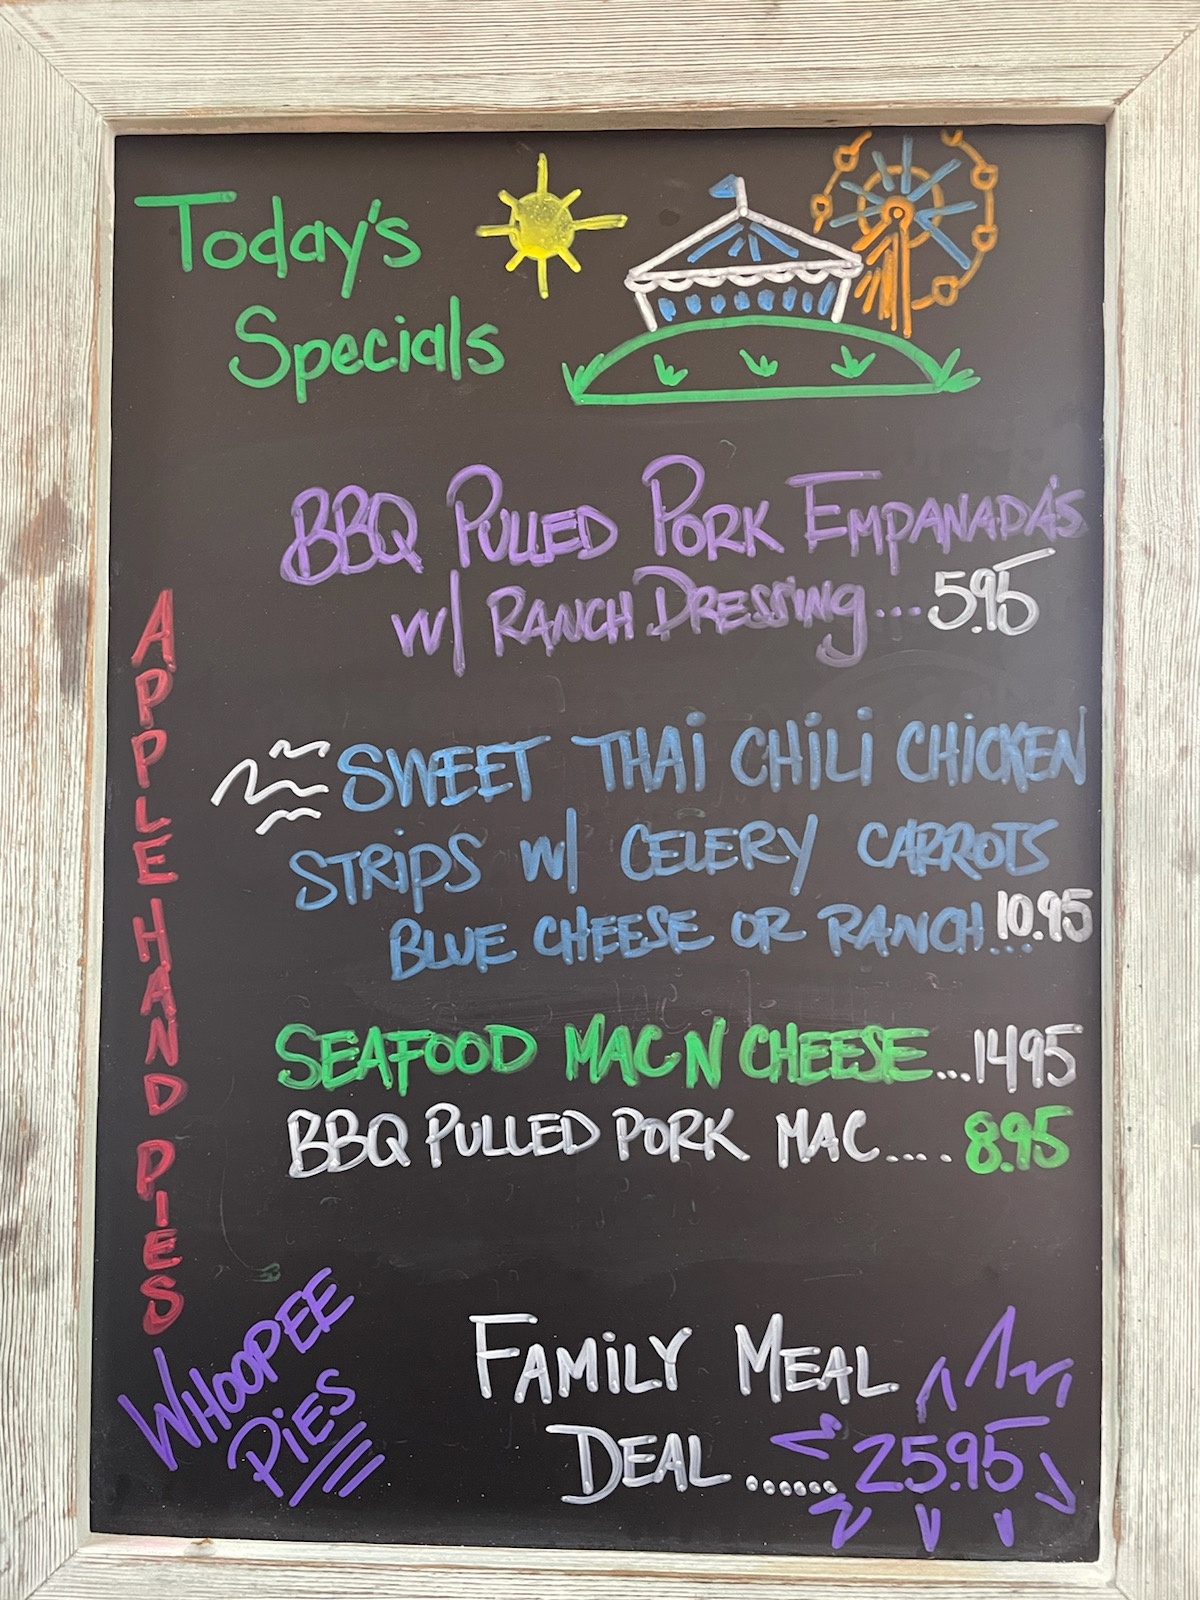 Today's
Specials
BBQ PULLED PORK EMPANADA'S
W/ RANCH DRESSING...5.95
SWEET THAI CHILI CHICKEN
STRIPS W/ CELERY CARROTS
BLUE CHEESE OR RANCH...10.95
SEAFOOD MAC N CHEESE...1495
BBQ PULLED PORK MAC.... 8.95
APPLE HAND PIES
WHOOPEE
PIES
FAMILY MEAL
DEAL...... 25.95